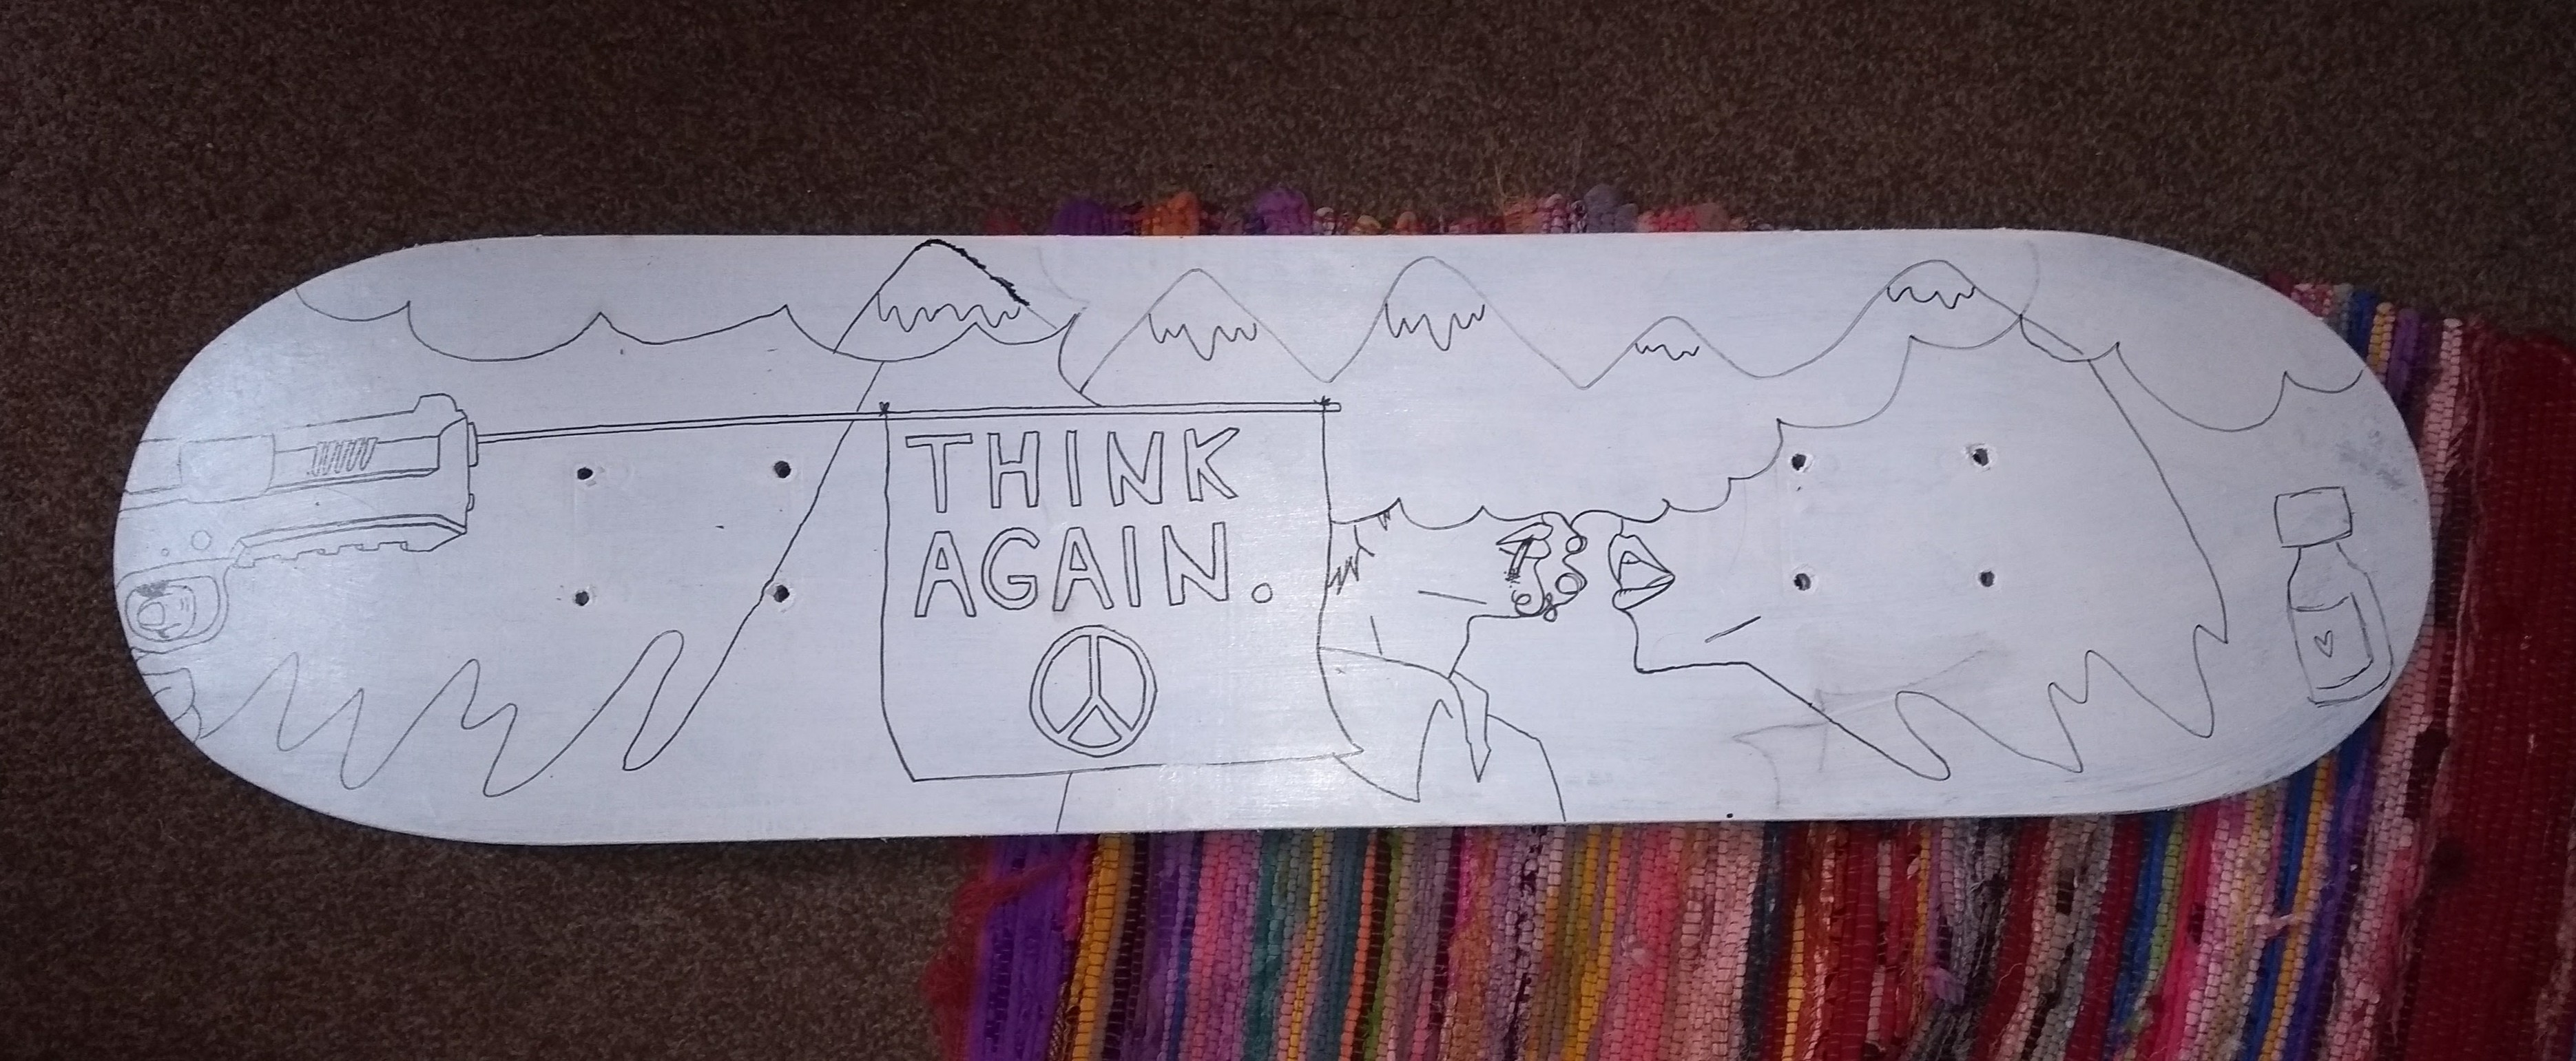 THINK
AGAIN.